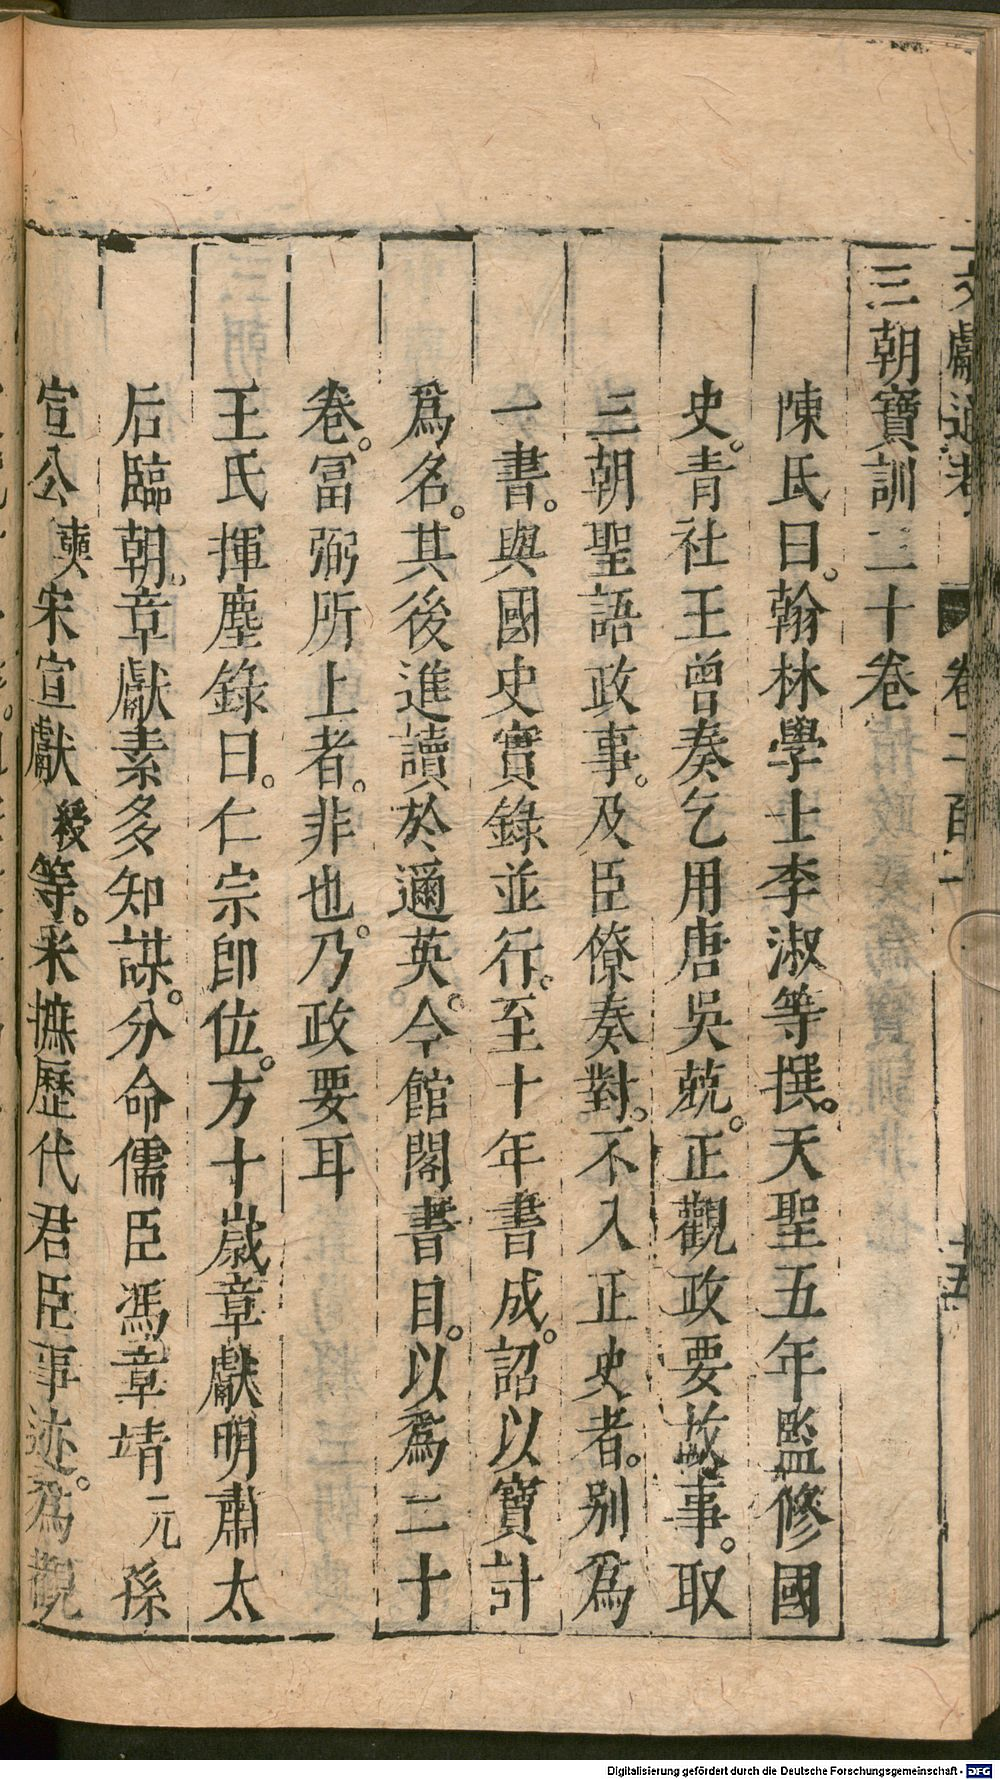 文獻通考 卷二百一 十五
三朝寶訓三十卷
陳氏曰。翰林學士李淑等撰。天聖五年監修國
史。青社王曾奏乞用唐吳兢。正觀政要故事。取
三朝聖語政事。及臣僚奏對。不入正史者。別爲
一書。與國史實錄並行。至十年書成。詔以寶訓
爲名。其後進讀於邇英。今館閣書目。以爲二十
卷。富弼所上者。非也。乃政要耳
王氏揮塵錄曰。仁宗卽位。方十歲章獻明肅太
后臨朝。章獻素多知謀。分命儒臣馮章靖元孫
宣公奭宋宣獻綬等。采摭歷代君臣事迹。爲觀
Digitalisierung gefördert durch die Deutsche Forschungsgemeinschaft - DFG